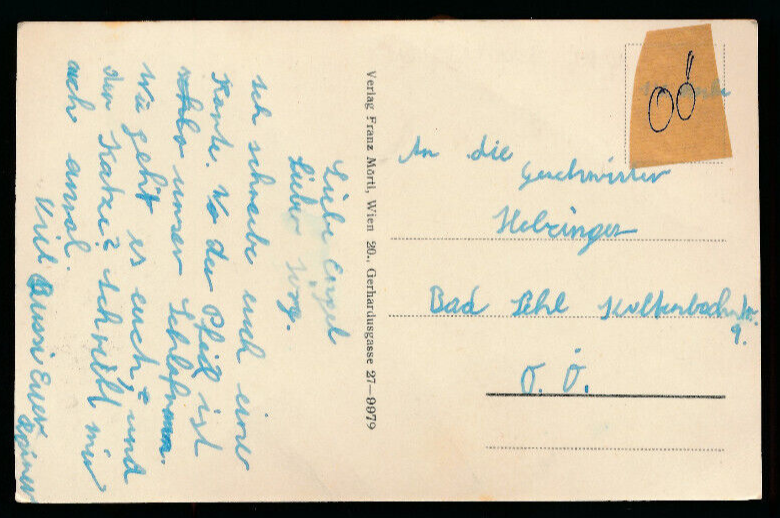 Liebe Engel
Lieber Jörg.
Ich schreibe euch eine
Karte. Wo der Pfeil ist
unser Schlafraum.
Wie geht es euch, und
der Katze? Schreibt mir
auch amal.
Viel Bussi Euer
Verlag Franz Mörtl, Wien 20., Gerhardusgasse 27—9979
An die
Geschwister
Helringer
Bad Ischl Kaltenbachstr.
9.
O. Ö.